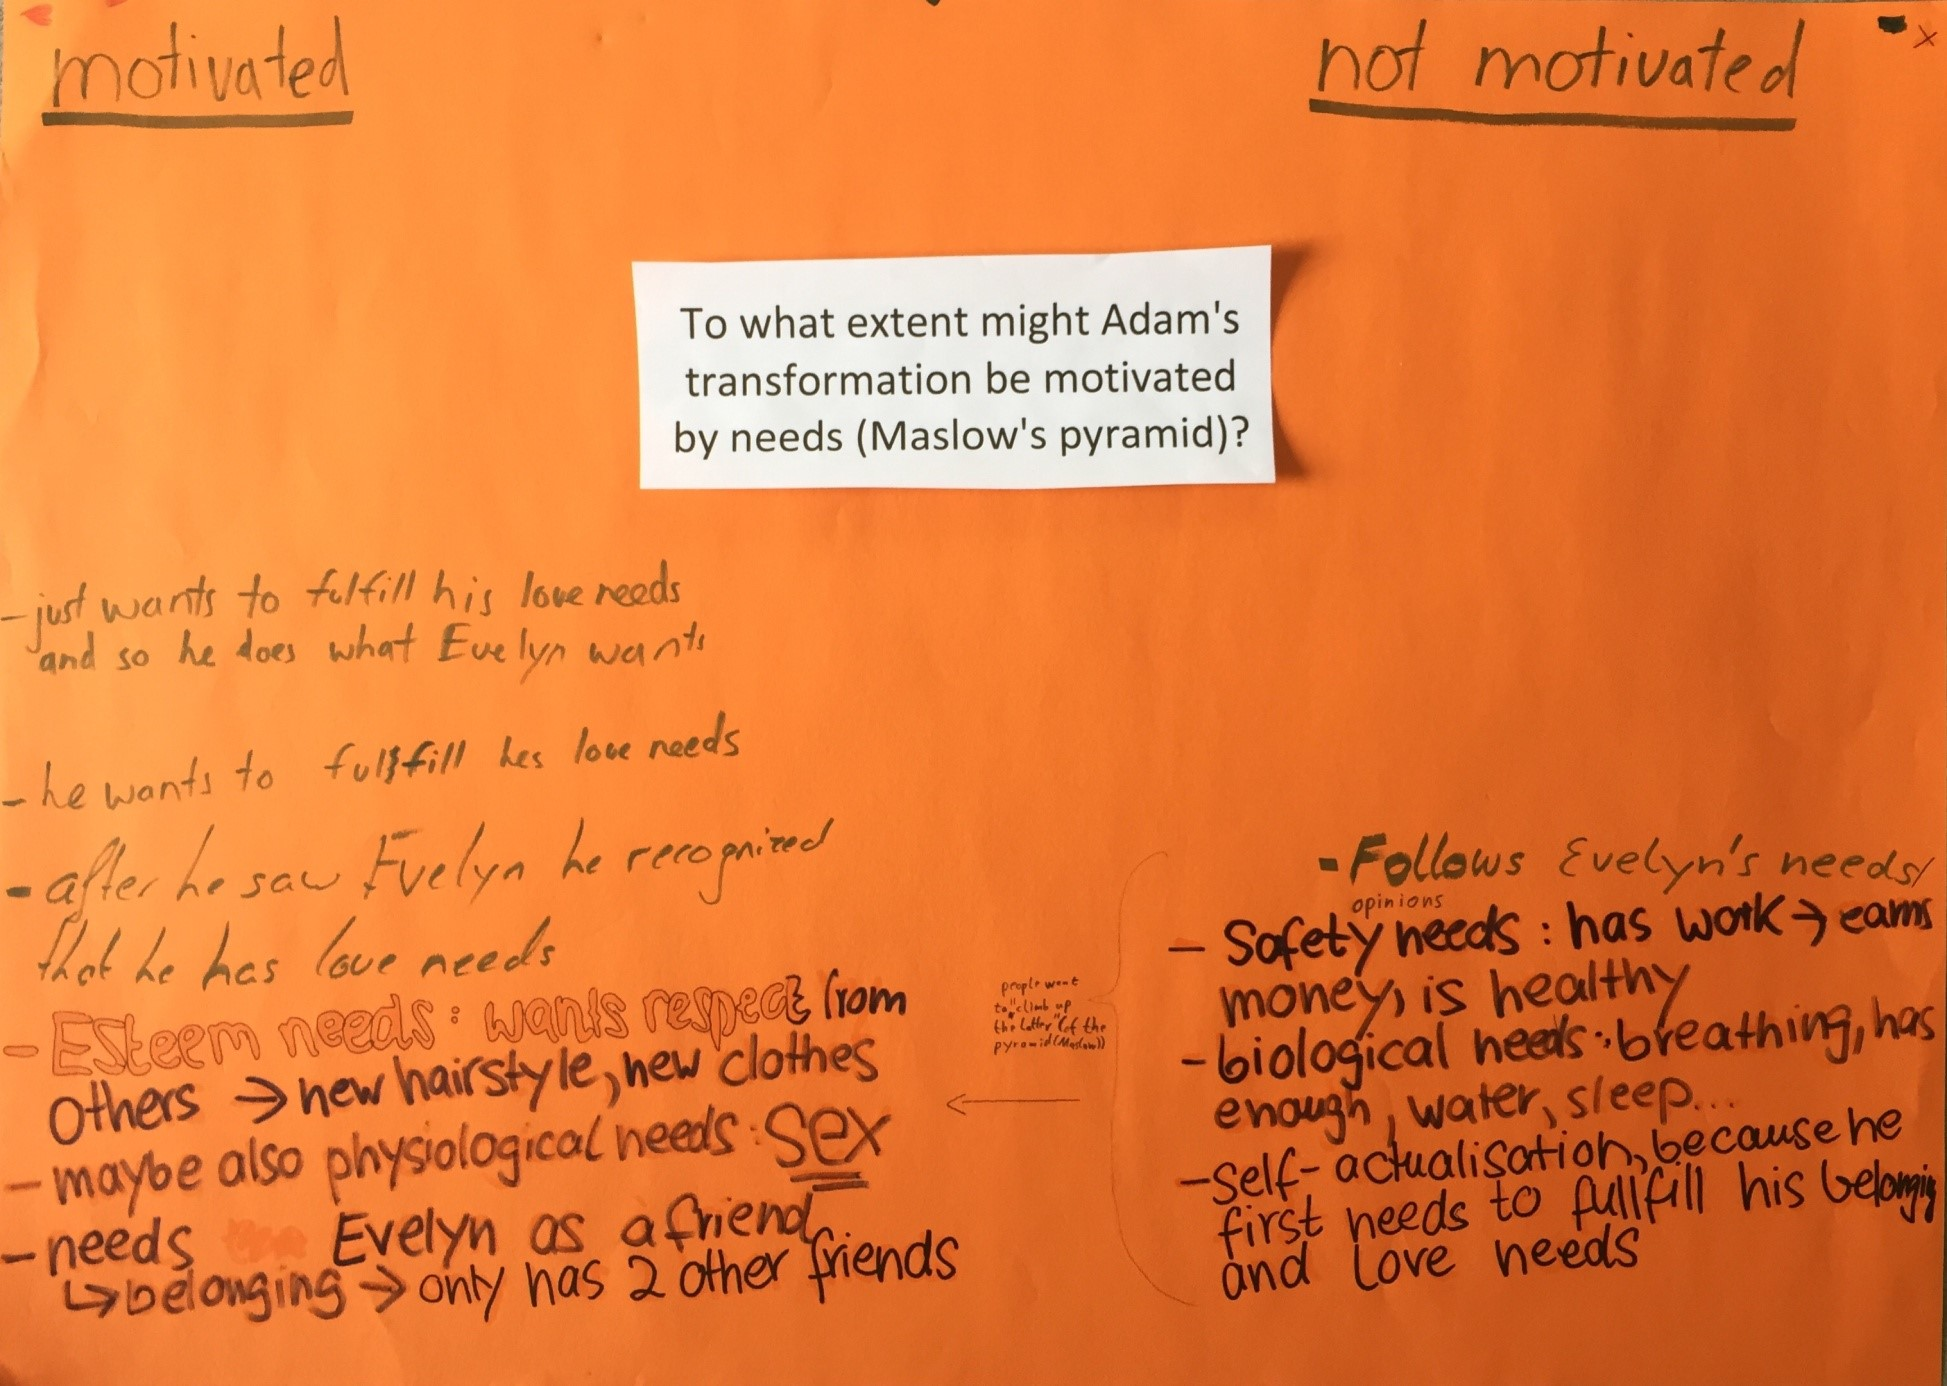 motivated
not motivated
To what extent might Adam's
transformation be motivated
by needs (Maslow's pyramid)?
- just wants to fulfill his love needs
and so he does what Evelyn wants
- he wants to fullfill hes love needs
- after he saw Evelyn he recognized
that he has love needs
- Esteem needs: wants respect from
others → new hairstyle, new clothes
- maybe also physiological needs: sex
- needs Evelyn as a friend
↳ belonging → only has 2 other friends
people want
to "climb up
the latter" (of the
pyramid (Maslow))
←
- Follows Evelyn's needs/
opinions
- Safety needs: has work → earns
money, is healthy
- biological needs: breathing, has
enough, water, sleep...
- self-actualisation, because he
first needs to fullfill his belonging
and love needs